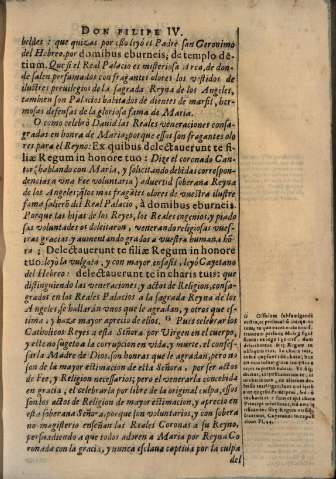 DON FILIPE IV.
beldes: que quizas por esso leyó el Padre san Geronimo
del Hebreo, por domibus eburneis, de templo de-
tium. Que si el Real Palacio es misteriosa Arca, de don-
de salen perfumados con fragantes olores los vestidos de
ilustres privilegios de la sagrada Reyna de los Angeles,
tambien son Palacios habitados de dientes de marfil, her-
mosas defensas de la gloriosa fama de Maria.
O como celebrò David las Reales veneraciones consa-
gradas en honra de Maria; porque essos son fragantes olo
res para el Reyno: Ex quibus delectauerunt te fi-
liæ Regum in honore tuo: Dize el coronado Can-
tor (hablando con Maria, y solicitando debidas correspon-
dencias a una Fee voluntaria) advertid soberana Reyna
de los Angeles, q̃ los mas fragãtes olores de vuestra ilustre
fama salierõ del Real Palacio, à domibus eburneis.
Porque las hijas de los Reyes, los Reales ingenios, y piado
sas voluntades os deleitaron, venerando religiosas vues-
tras gracias y aumentando grados a vuestra humana hõ
ra; Delectauerunt te filiæ Regum in honore
tuo: leyò la vulgata, y con mayor enfasis, leyò Cayetano
del Hebreo: delectauerunt te in charis tuis: que
distinguiendo las veneraciones, y actos de Religion, consa-
grados en los Reales Palacios a la sagrada Reyna de los
Angeles, se hallaràn unos que le agradan, y otros que es-
tima, y haze mayor aprecio de ellos. Pues celebrar los
Catholicos Reyes a esta Señora, por Virgen en el cuerpo,
y este no sugeto a la corrupcion en vida, y muerte, el confes-
sarla Madre de Dios, son honras que le agradan, pero no
son de la mayor estimacion de esta Señora, por ser actos
de Fee, y Religion necessarios; pero el venerarla concebida
en gracia, el celebrarla por libre de la original culpa, essos
son los actos de Religion de mayor estimacion, y aprecio en
esta soberana Señora, porque son voluntarios, y con sobera
no magisterio enseñan las Reales Coronas a su Reyno,
persuadiendo a que todos adoren a Maria por Reyna Co
ronada con la gracia, y nunca esclava captiva por la culpa
del